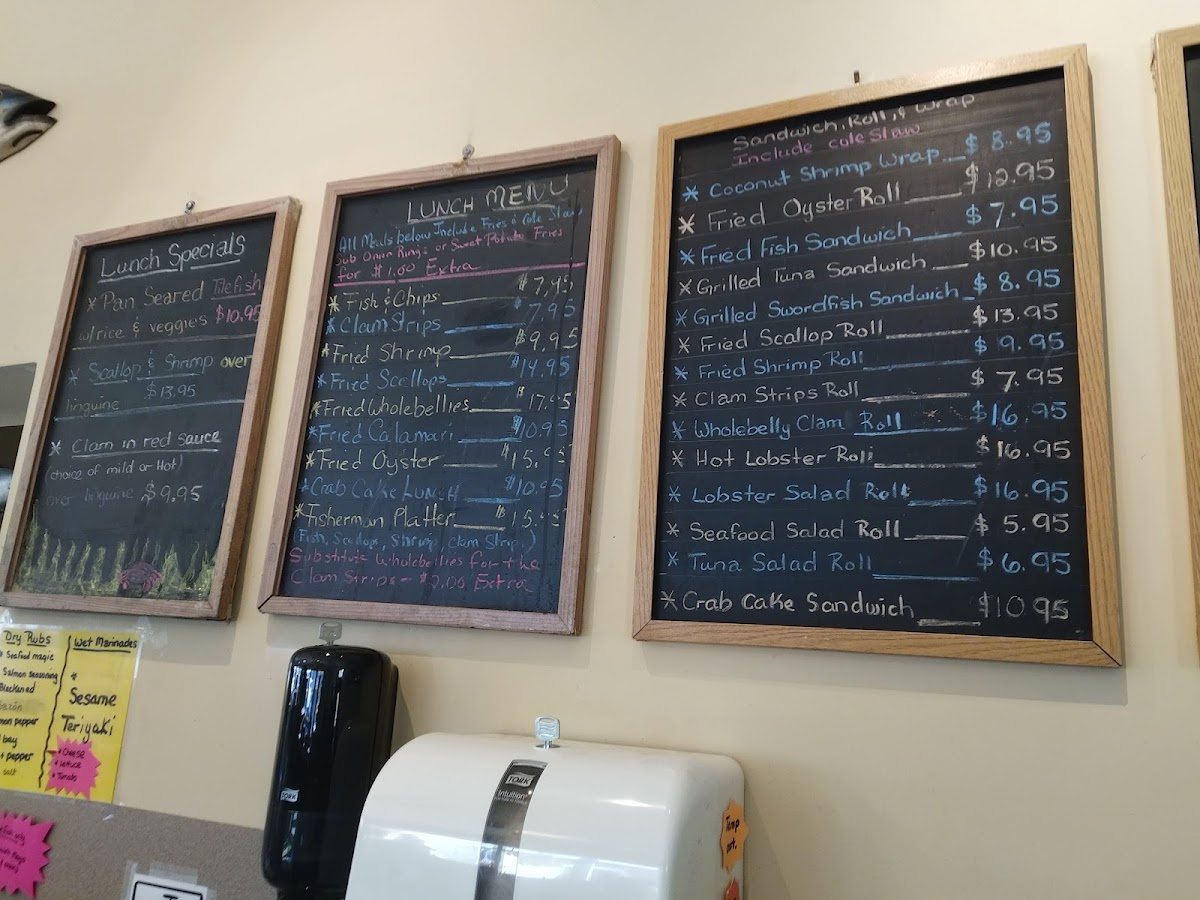 Lunch Specials
* Pan Seared Tilefish
w/rice & veggies $10.95
* Scallop & Shrimp over
linguine $13.95
* Clam in red sauce
(choice of mild or Hot)
over linguine $9.95
LUNCH MENU
All Meals below Include Fries & Cole Slaw
Sub Onion Rings or Sweet Potato Fries
for $1.00 Extra
* Fish & Chips $7.95
* Clam Strips 7.95
* Fried Shrimp $9.95
* Fried Scallops $14.95
* Fried Wholebellies $17.95
* Fried Calamari $10.95
* Fried Oyster $15.95
* Crab Cake Lunch $10.95
* Fisherman Platter $15.95
(Fish, Scallops, Shrimp, Clam Strips)
Substitute Wholebellies for the
Clam Strips - $2.00 Extra
Sandwich, Roll, & Wrap
Include cole slaw
* Coconut Shrimp Wrap $8.95
* Fried Oyster Roll $12.95
* Fried Fish Sandwich $7.95
* Grilled Tuna Sandwich $10.95
* Grilled Swordfish Sandwich $8.95
* Fried Scallop Roll $13.95
* Fried Shrimp Roll $9.95
* Clam Strips Roll $7.95
* Wholebelly Clam Roll $16.95
* Hot Lobster Roll $16.95
* Lobster Salad Roll $16.95
* Seafood Salad Roll $5.95
* Tuna Salad Roll $6.95
* Crab Cake Sandwich $10.95
Dry Rubs
* Seafood magic
Salmon seasoning
Blackened
pepper
bay
+ pepper
salt
Wet Marinades
* Sesame
Teriyaki
* Cheese
* Lettuce
* Tomato
TORK
TORK
Intuition